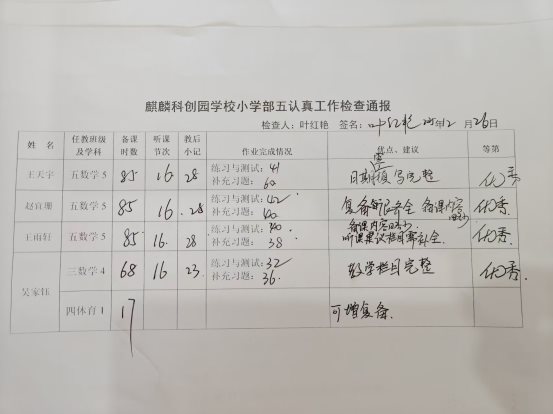 麒麟科创园学校小学部五认真工作检查通报
检查人：叶红艳 签名：叶红艳 25年12月26日
姓 名 任教班级及学科 备课时数 听课节次 教后小记 作业完成情况 优点、建议 等第
王天宇 五数学5 85 16 28 练习与测试：41 日期 写完整 优秀
补充习题：60
赵宜珊 五数学5 85 16 28 练习与测试：42 复备 齐全 备课内容 优秀
补充习题：40
王雨轩 五数学5 85 16 28 练习与测试：40 备课内容 优秀
补充习题：38 听课 栏目 补全
吴家钰 三数学4 68 16 23 练习与测试：32 教学栏目完整 优秀
补充习题：36
四体育1 17 可增复备.